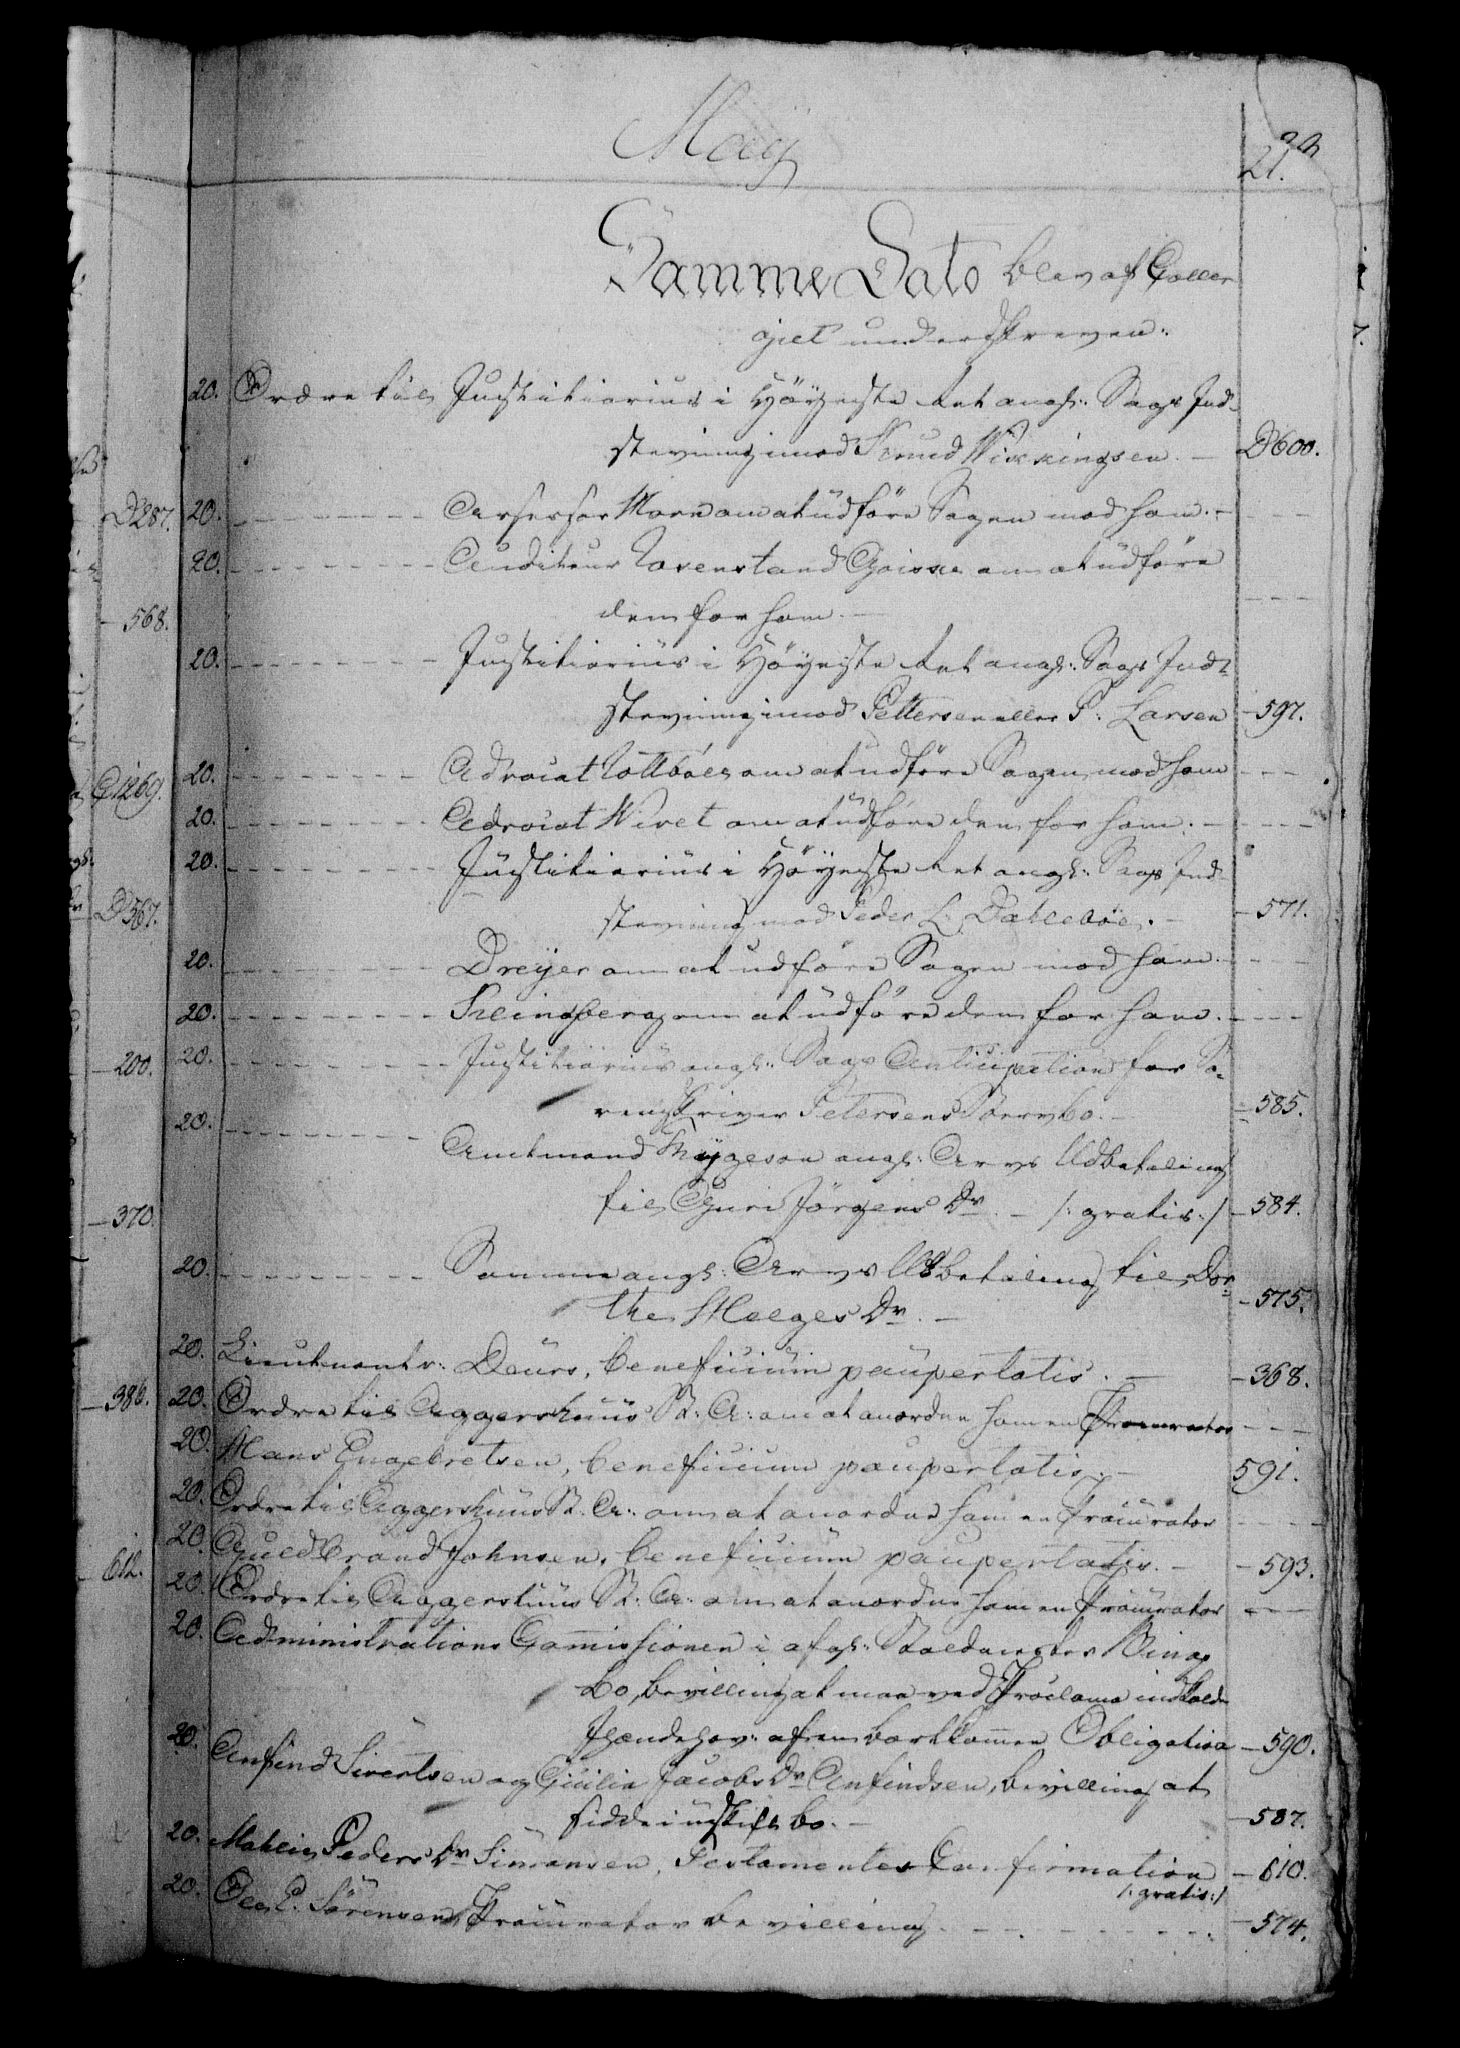 May
21.
Samme Dato blev af Colle-
giet underskreven:
20. Ordre til Justitiarius i Höyeste Ret angl: Sags Ind-
stevning imod Knud Wikkingsen. — D600.
20. Assessor Morn om at udföre Sagen mod ham. —
20. Auditeur Rosenstand Goiske om at udföre
dem for ham. —
20. Justitiarius i Höyeste Ret angl: Sags Ind-
stevning imod Pettersen eller P. Larsen — 597.
20. Advocat Rottböll om at udföre Sagen mod ham
20. Advocat Wivet om at udföre den for ham. —
20. Justitiarius i Höyeste Ret angl: Sags Ind-
stevning mod Peder L. Dahleböe. — 571.
20. Dreyer om at udföre Sagen mod ham.
20. Kleinsberg om at udföre dem for ham.
20. Justitiarius angl: Sags Anticipation for So-
renskriver Petersens Stervbo. — 585.
20. Amtmand Thygeson angl: Arvs Udbetaling
til Guri Jörgens Dr. — /: gratis:/ — 584.
20. Samme angl: Arvs Udbetaling til Dor-
the Helges Dr. — 575.
20. Lieutenant v: Deurs, beneficium paupertatis. — 368.
20. Ordre til Aggershuus St: A: om at anordne ham en Procurator
20. Hans Engebretsen, beneficium paupertatis. — 591.
20. Ordre til Aggershuus St. A: om at anordne ham en Procurator
20. Guldbrand Johnsen, beneficium paupertatis. — 593.
20. Ordre til Aggershuus St: A: om at anordne ham en Procurator
20. Administrations Commissionen i afg: Staldmester Bings
bo, bevilling at maa ved Proclama indkalde
Ihændehav: af en bortkommen Obligation — 590.
20. Anfind Sivertsen og Cicilia Jacobs Dr Anfindsen, bevilling at
sidde i uskift bo. — 587.
20. Mahlin Peders Dr Simonsen, Testamentes Confirmation — 610.
/: gratis:/
20. Ole P. Sörensen Procurator bevilling — 574.
D287.
— 568.
G1269.
D567.
— 200.
— 370.
— 386.
612.